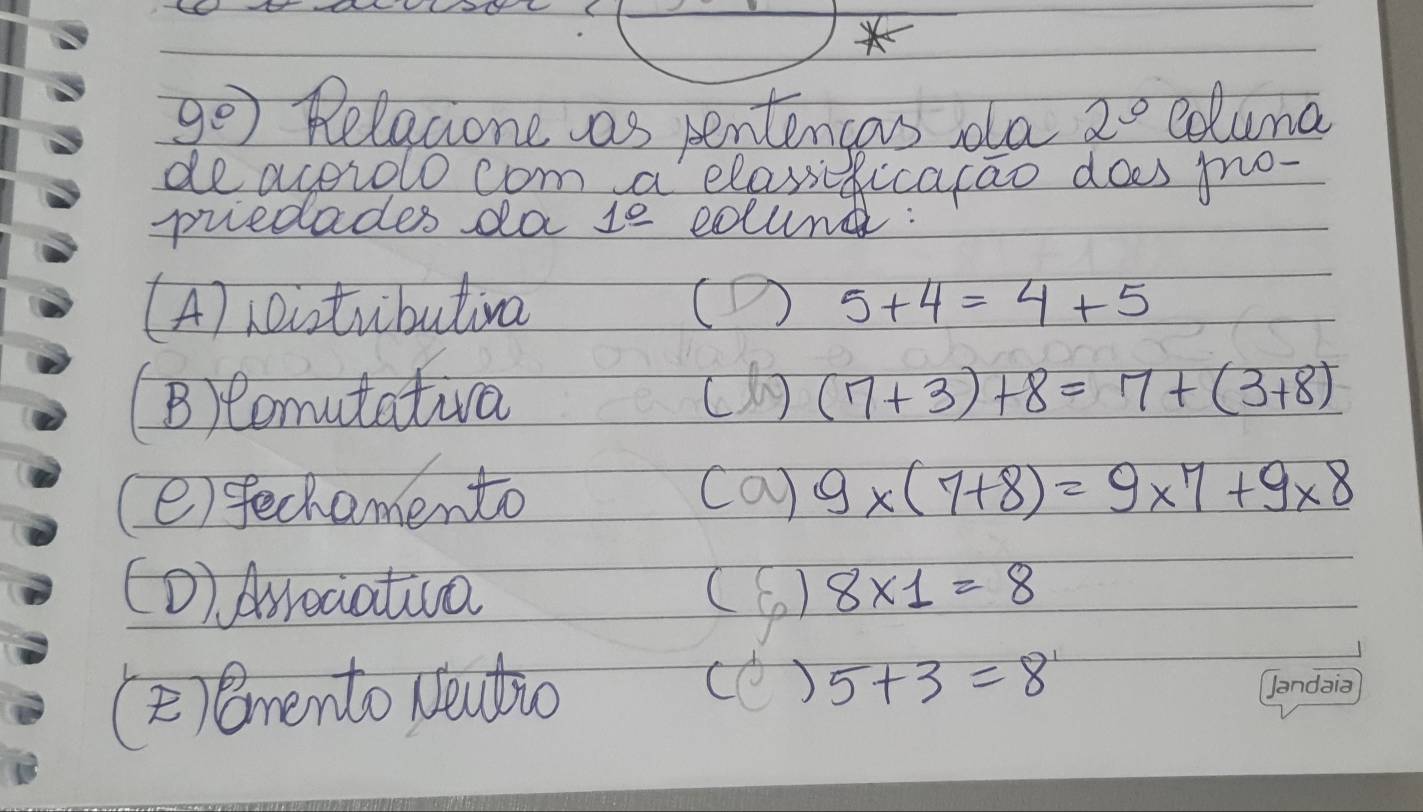 9º) Relacione as sentenças da 2º coluna
de acordo com a classificação das pro-
priedades da 1º coluna:
(A) Distributiva (D) 5+4 = 4+5
(B) Comutativa (b) (7+3)+8 = 7+(3+8)
(C) Fechamento (a) 9x(7+8) = 9x7+9x8
(D) Associativa (E) 8x1 = 8
(E) Emento Neutro (C) 5+3 = 8
Jandaia